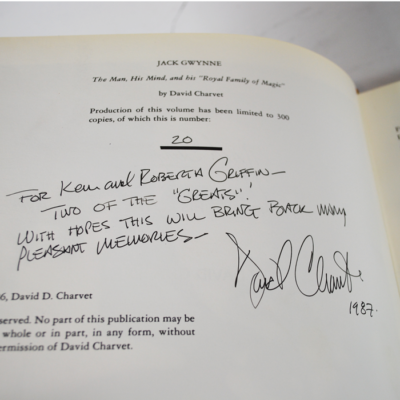 JACK GWYNNE
The Man, His Mind, and his "Royal Family of Magic"
by David Charvet
Production of this volume has been limited to 500
copies, of which this is number:
20
FOR Ken and ROBERTA GRIFFIN—
TWO OF THE "GREATS"!
WITH HOPES THIS WILL BRING BACK many
PLEASANT MEMORIES—
David Charvet
1987.
6, David D. Charvet
served. No part of this publication may be
whole or in part, in any form, without
ermission of David Charvet.